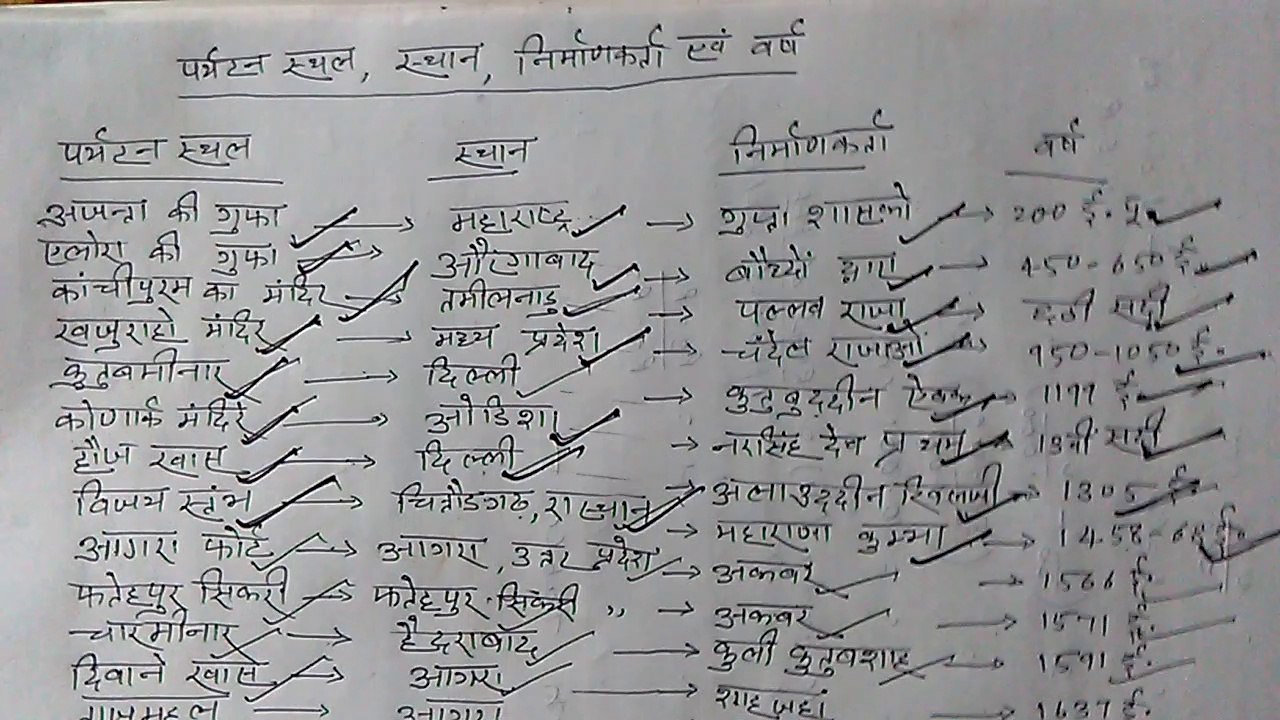 पर्यटन स्थल, स्थान, निर्माणकर्ता एवं वर्ष
पर्यटन स्थल स्थान निर्माणकर्ता वर्ष
अजन्ता की गुफा → महाराष्ट्र → गुप्त शासको → 200 ई. पू.
एलोरा की गुफा → औरंगाबाद → बौध्दों द्वारा → 450-650 ई.
कांचीपुरम का मंदिर → तमीलनाडु → पल्लव राजा → छठी सदी
खजुराहो मंदिर → मध्य प्रदेश → चंदेल राजाओं → 950-1050 ई.
कुतुबमीनार → दिल्ली → कुतुबुद्दीन ऐबक → 1199 ई.
कोणार्क मंदिर → ओडिशा → नरसिंह देव प्रथम → 13वीं सदी
हौज खास → दिल्ली → अलाउद्दीन खिलजी → 1305 ई.
विजय स्तंभ → चित्तौडगढ़, राजस्थान → महाराणा कुम्भा → 1458-68 ई.
आगरा फोर्ट → आगरा, उत्तर प्रदेश → अकबर → 1566 ई.
फतेहपुर सिकरी → फतेहपुर सिकरी ,, → अकबर → 1571 ई.
चारमीनार → हैदराबाद → कुली कुतुबशाह → 1591 ई.
दिवाने खास → आगरा → शाहजहां → 1637 ई.
ताजमहल → आगरा